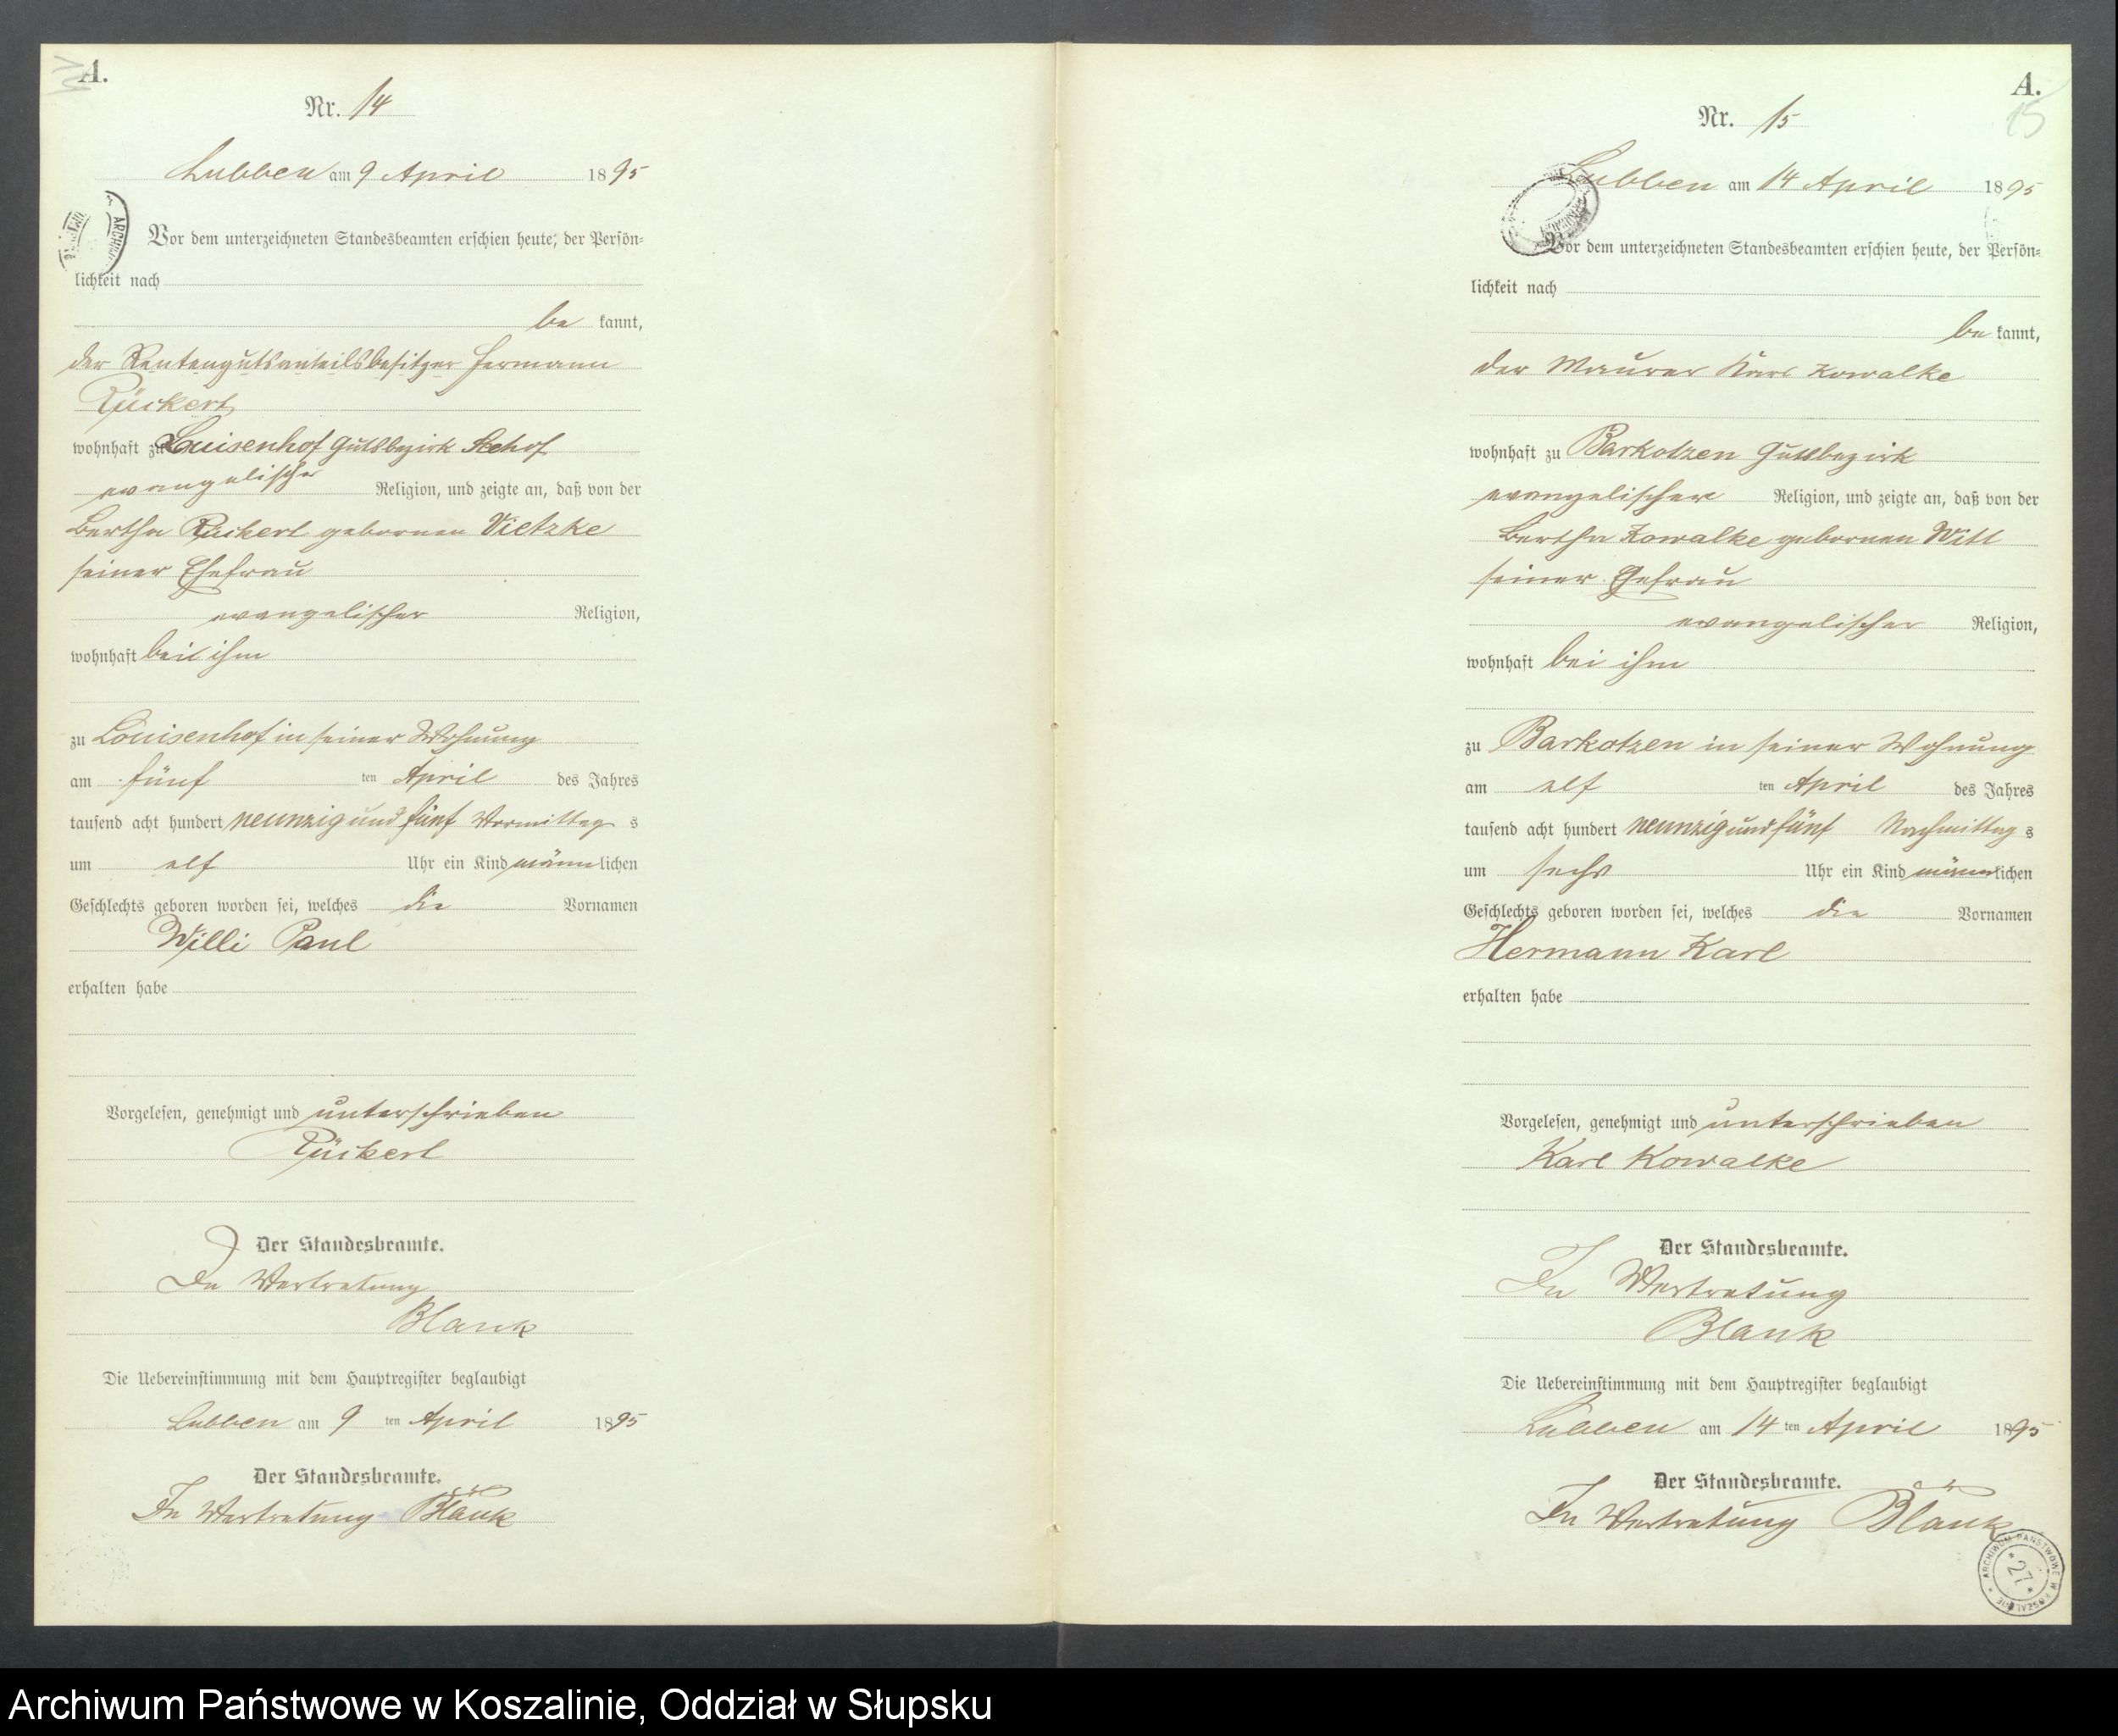 A.
Nr. 14
Lubben am 9 April 1895
Vor dem unterzeichneten Standesbeamten erschien heute, der Persön=
lichkeit nach
be kannt,
der Rentengutsanteilsbesitzer Hermann
Rückert
wohnhaft zu Louisenhof Gutsbezirk
evangelischer Religion, und zeigte an, daß von der
Bertha Rückert gebornen Vietzke
seiner Ehefrau
evangelischer Religion,
wohnhaft bei ihm
zu Louisenhof in seiner Wohnung
am fünf ten April des Jahres
tausend acht hundert neunzig und fünf Vormittag s
um elf Uhr ein Kind männlichen
Geschlechts geboren worden sei, welches die Vornamen
Willi Paul
erhalten habe
Vorgelesen, genehmigt und unterschrieben
Rückert
Der Standesbeamte.
In Vertretung
Blank
Die Uebereinstimmung mit dem Hauptregister beglaubigt
Lubben am 9 ten April 1895
Der Standesbeamte.
In Vertretung Blank
A.
15
Nr. 15
Lubben am 14 April 1895
Vor dem unterzeichneten Standesbeamten erschien heute, der Persön=
lichkeit nach
be kannt,
der Maurer Karl Kowalke
wohnhaft zu Barkotzen Gutsbezirk
evangelischer Religion, und zeigte an, daß von der
Bertha Kowalke gebornen Witt
seiner Ehefrau
evangelischer Religion,
wohnhaft bei ihm
zu Barkotzen in seiner Wohnung
am elf ten April des Jahres
tausend acht hundert neunzig und fünf Nachmittag s
um sechs Uhr ein Kind männlichen
Geschlechts geboren worden sei, welches die Vornamen
Hermann Karl
erhalten habe
Vorgelesen, genehmigt und unterschrieben
Karl Kowalke
Der Standesbeamte.
In Vertretung
Blank
Die Uebereinstimmung mit dem Hauptregister beglaubigt
Lubben am 14 ten April 1895
Der Standesbeamte.
In Vertretung Blank
ARCHIWUM PAŃSTWOWE W KOSZALINIE
* 27 *
Archiwum Państwowe w Koszalinie, Oddział w Słupsku